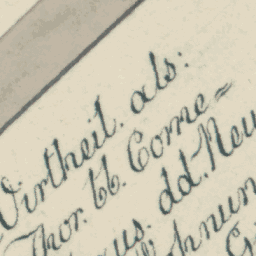 Virtheil. als:
Thor. tt. Corne=
us. dd. Neu
hnun